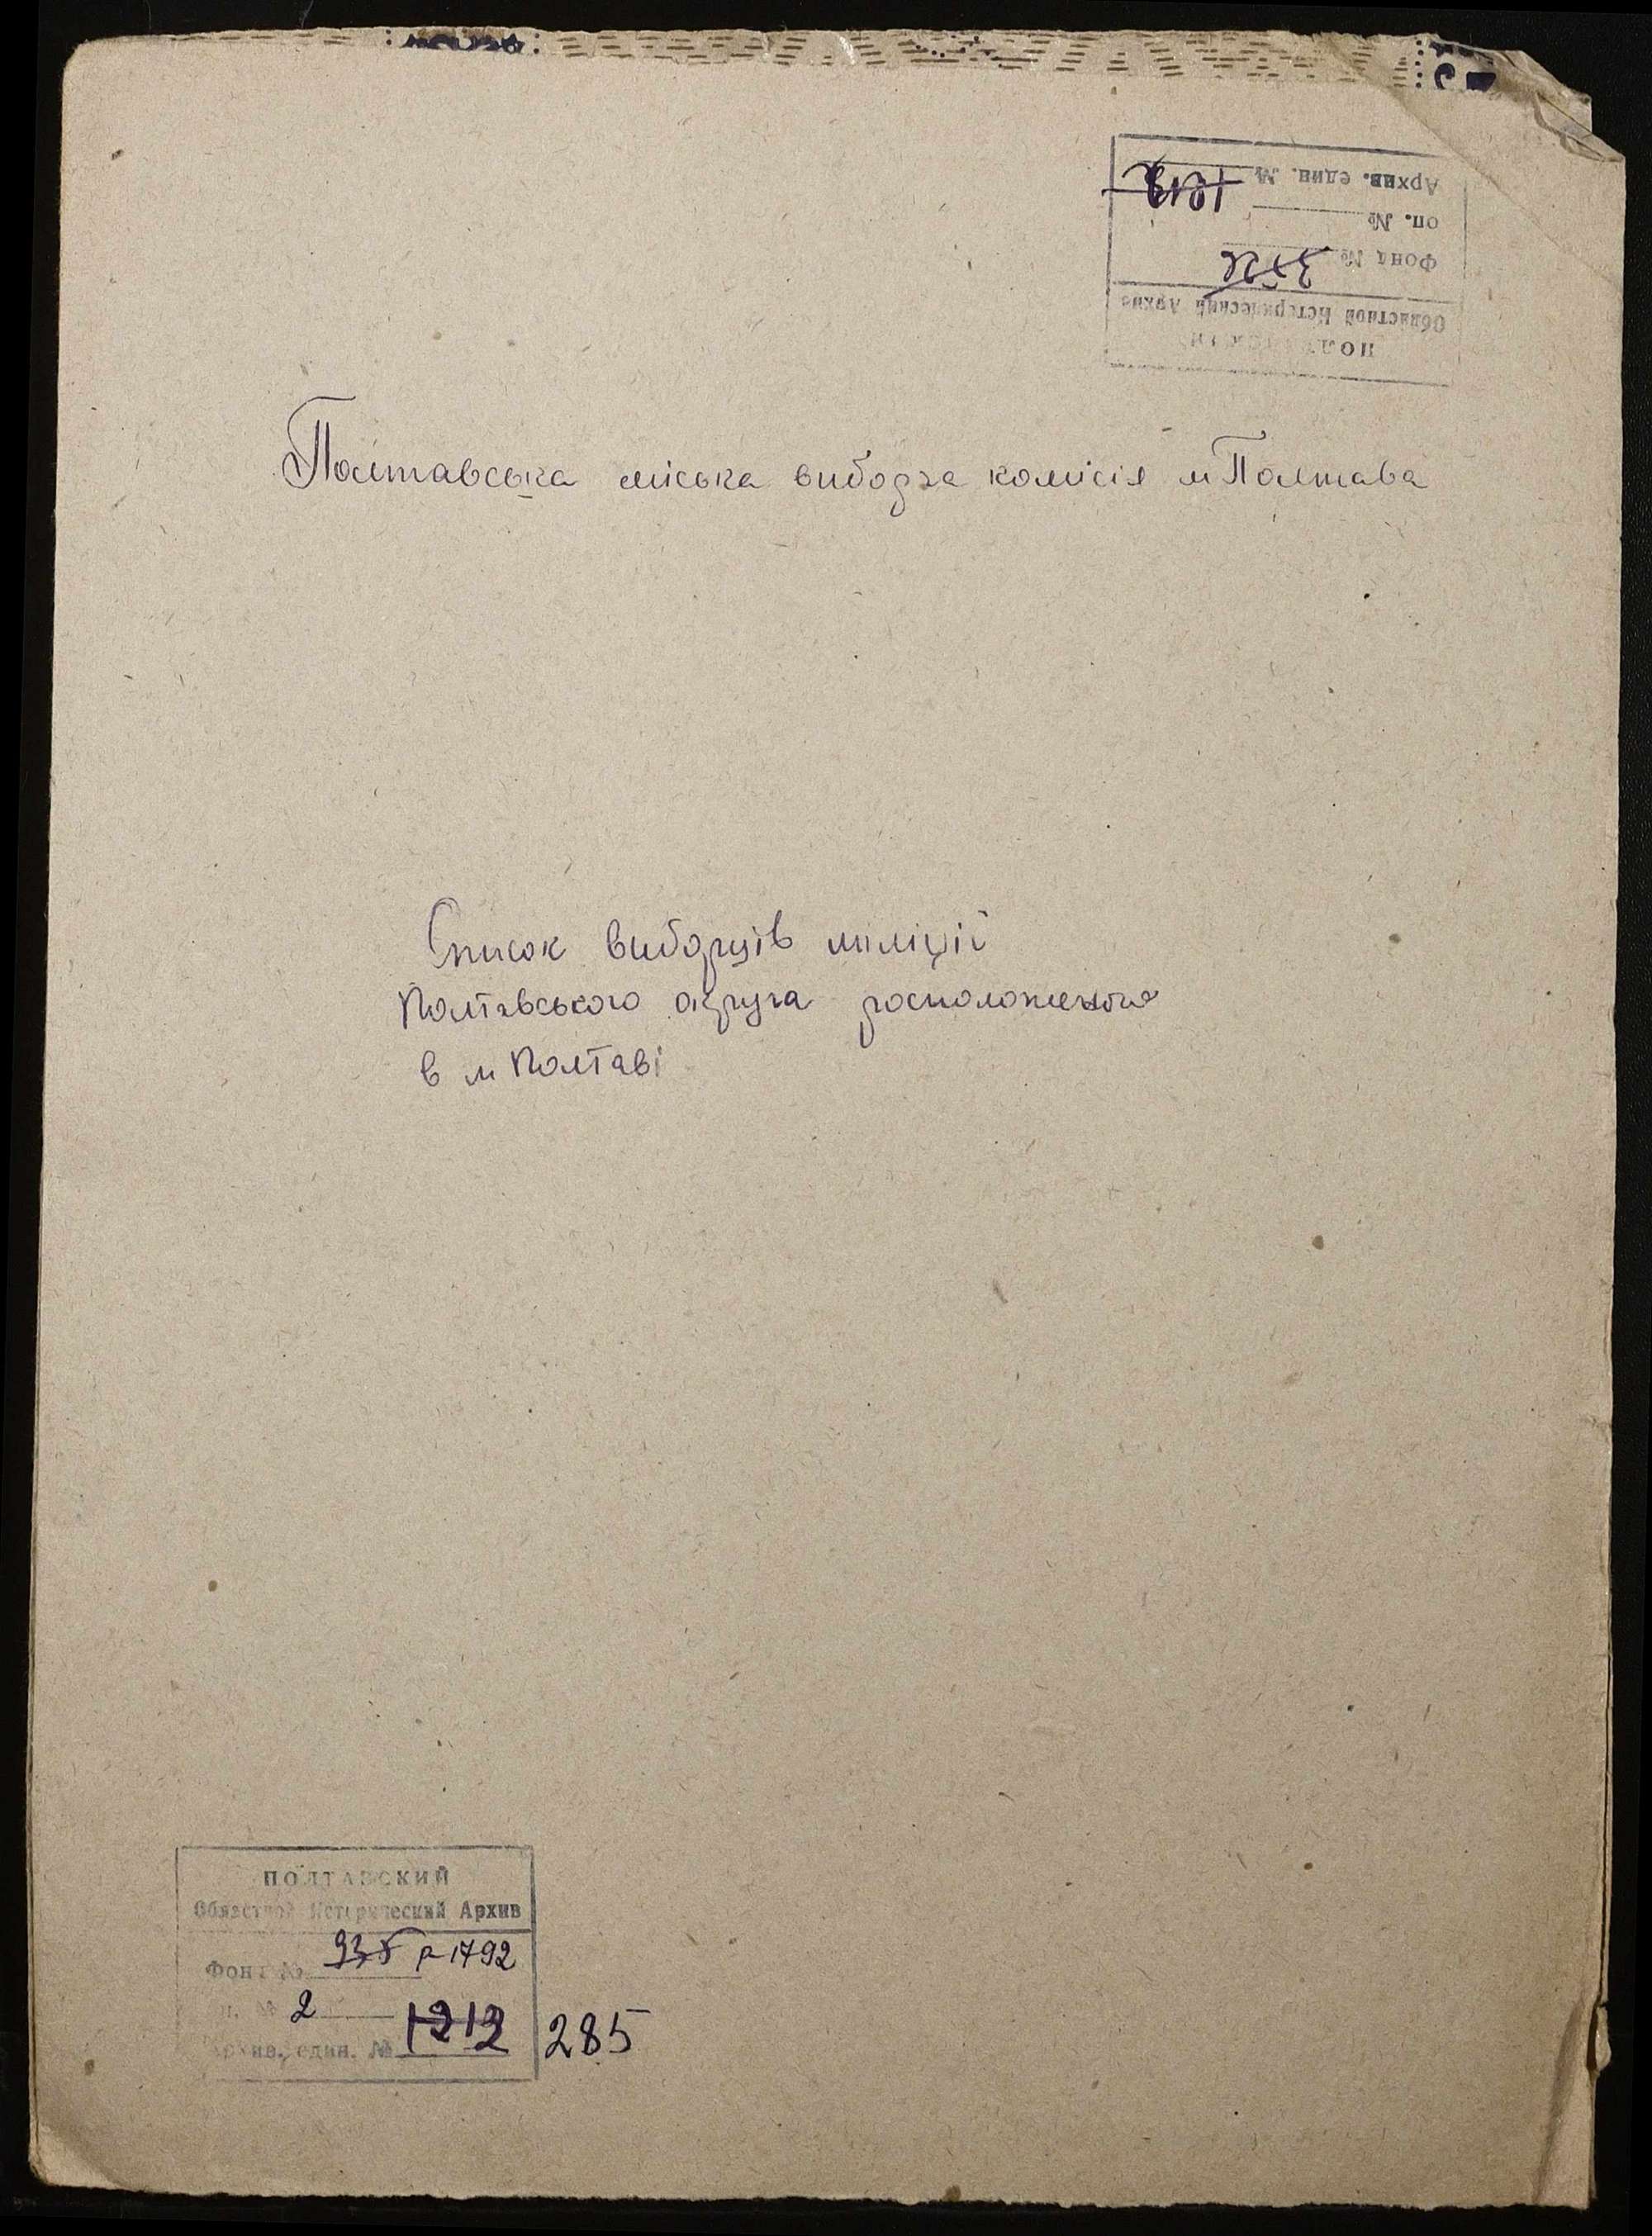 Архив. един. № 1212
оп. №
Фонд №
Областной Исторический Архив
Полтавська міська виборча комісія м Полтава
Список виборців міліції
Полтавського округа росположеного
в м Полтаві
ПОЛТАВСКИЙ
Областной Исторический Архив
Фонд № 935 р-1792
оп. № 2
Архив. един. № 1212 285